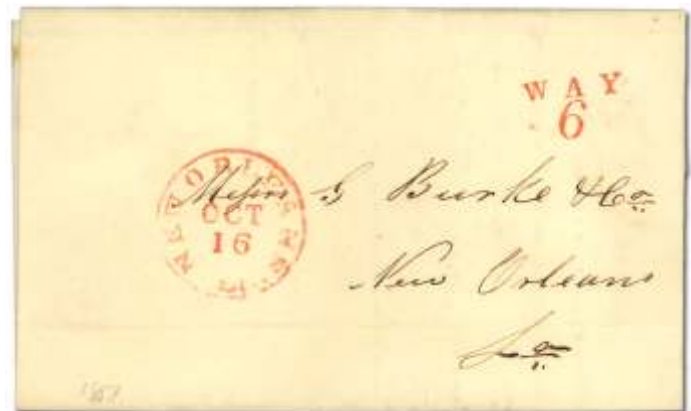 WAY
6
NEW ORLEANS
OCT
16
La
Messrs G Burke & Co
New Orleans
La